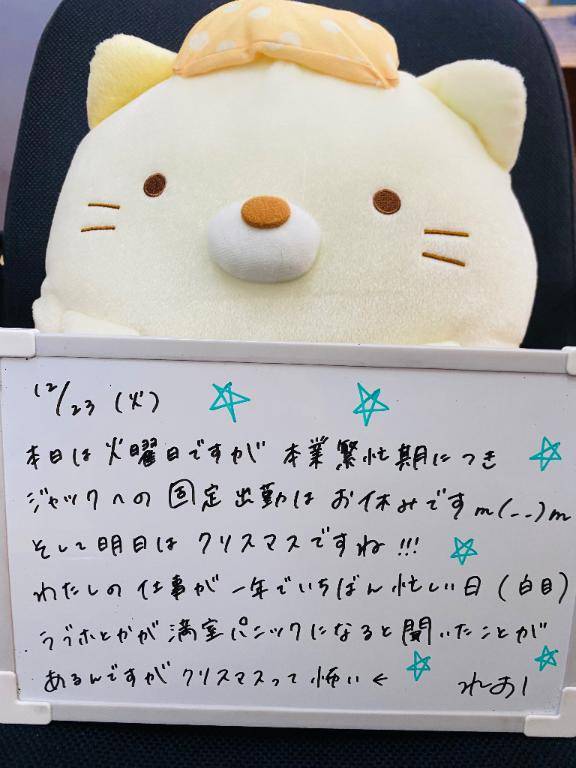 12/23 (火)
本日は火曜日ですが 本業繁忙期につき
ジャックへの固定出勤はお休みですm(--)m
そして明日はクリスマスですね!!!
わたしの仕事が一年でいちばん忙しい日(白目)
ラブホとかが満室パニックになると聞いたことが
あるんですがクリスマスって怖い←
れお